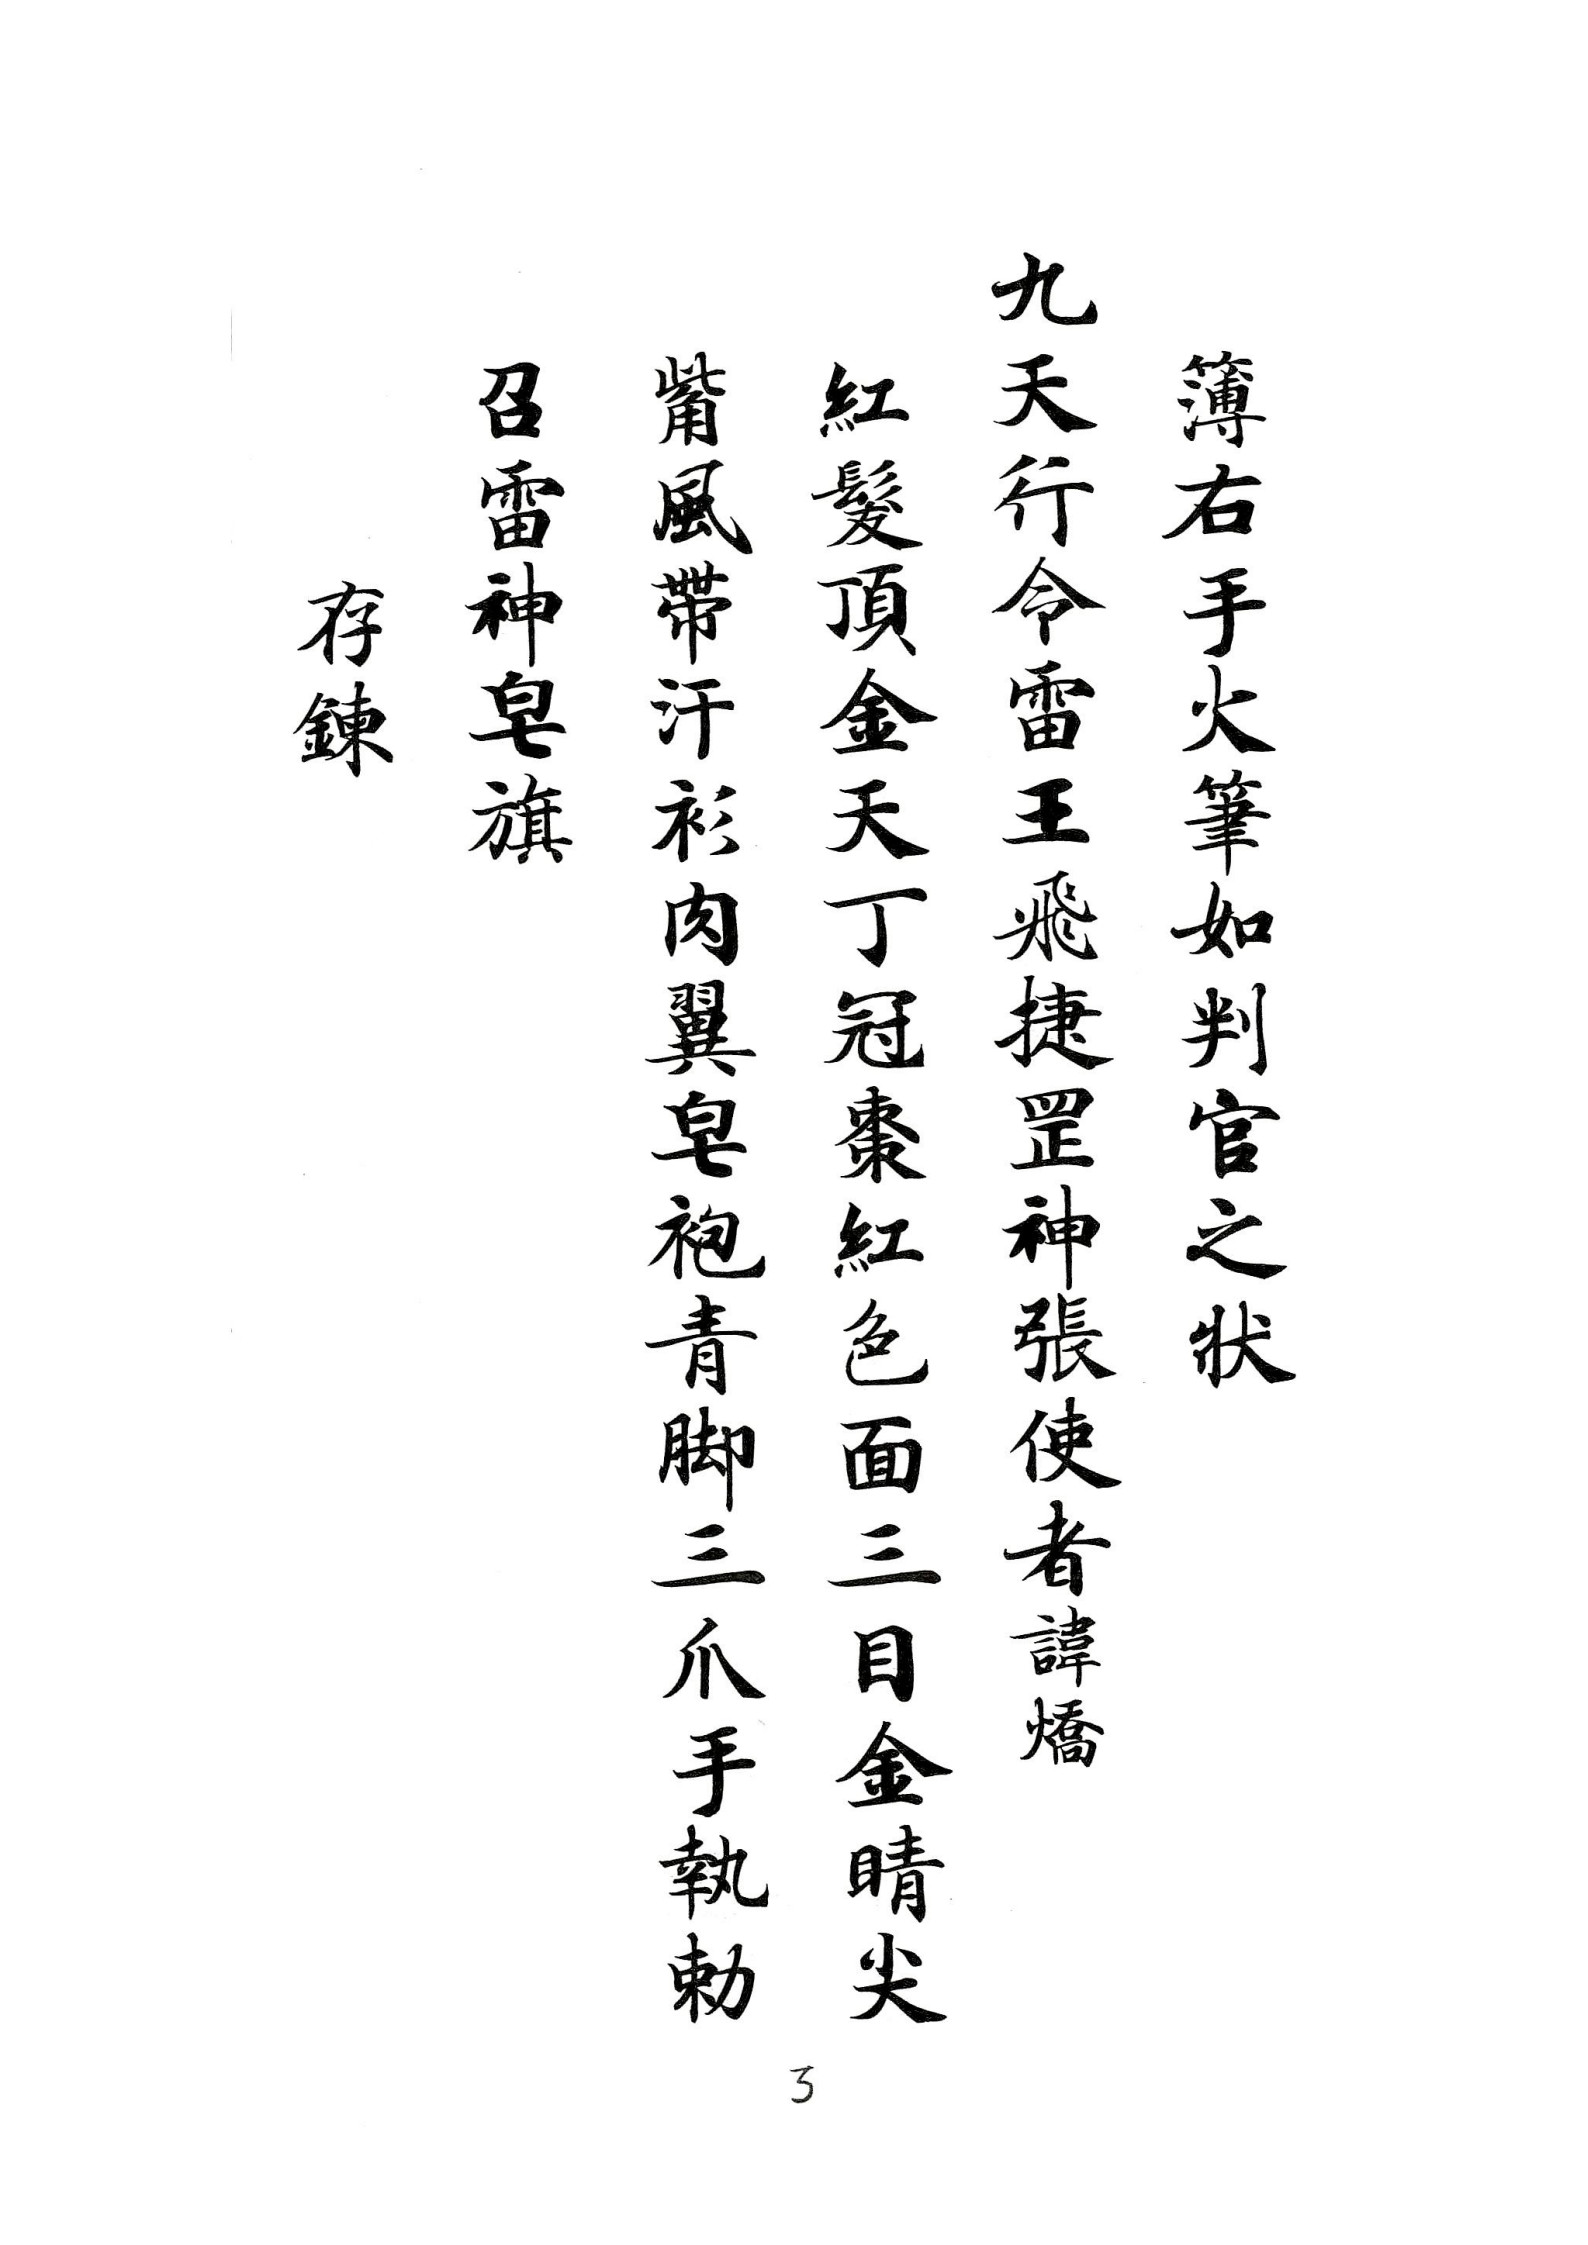 簿右手火筆如判官之狀
九天行令雷王飛捷罡神張使者諱燆
紅髮頂金天丁冠棗紅色面三目金睛尖
觜風帶汗衫肉翼皂袍青脚三爪手執勅
召雷神皂旗
存鍊
3